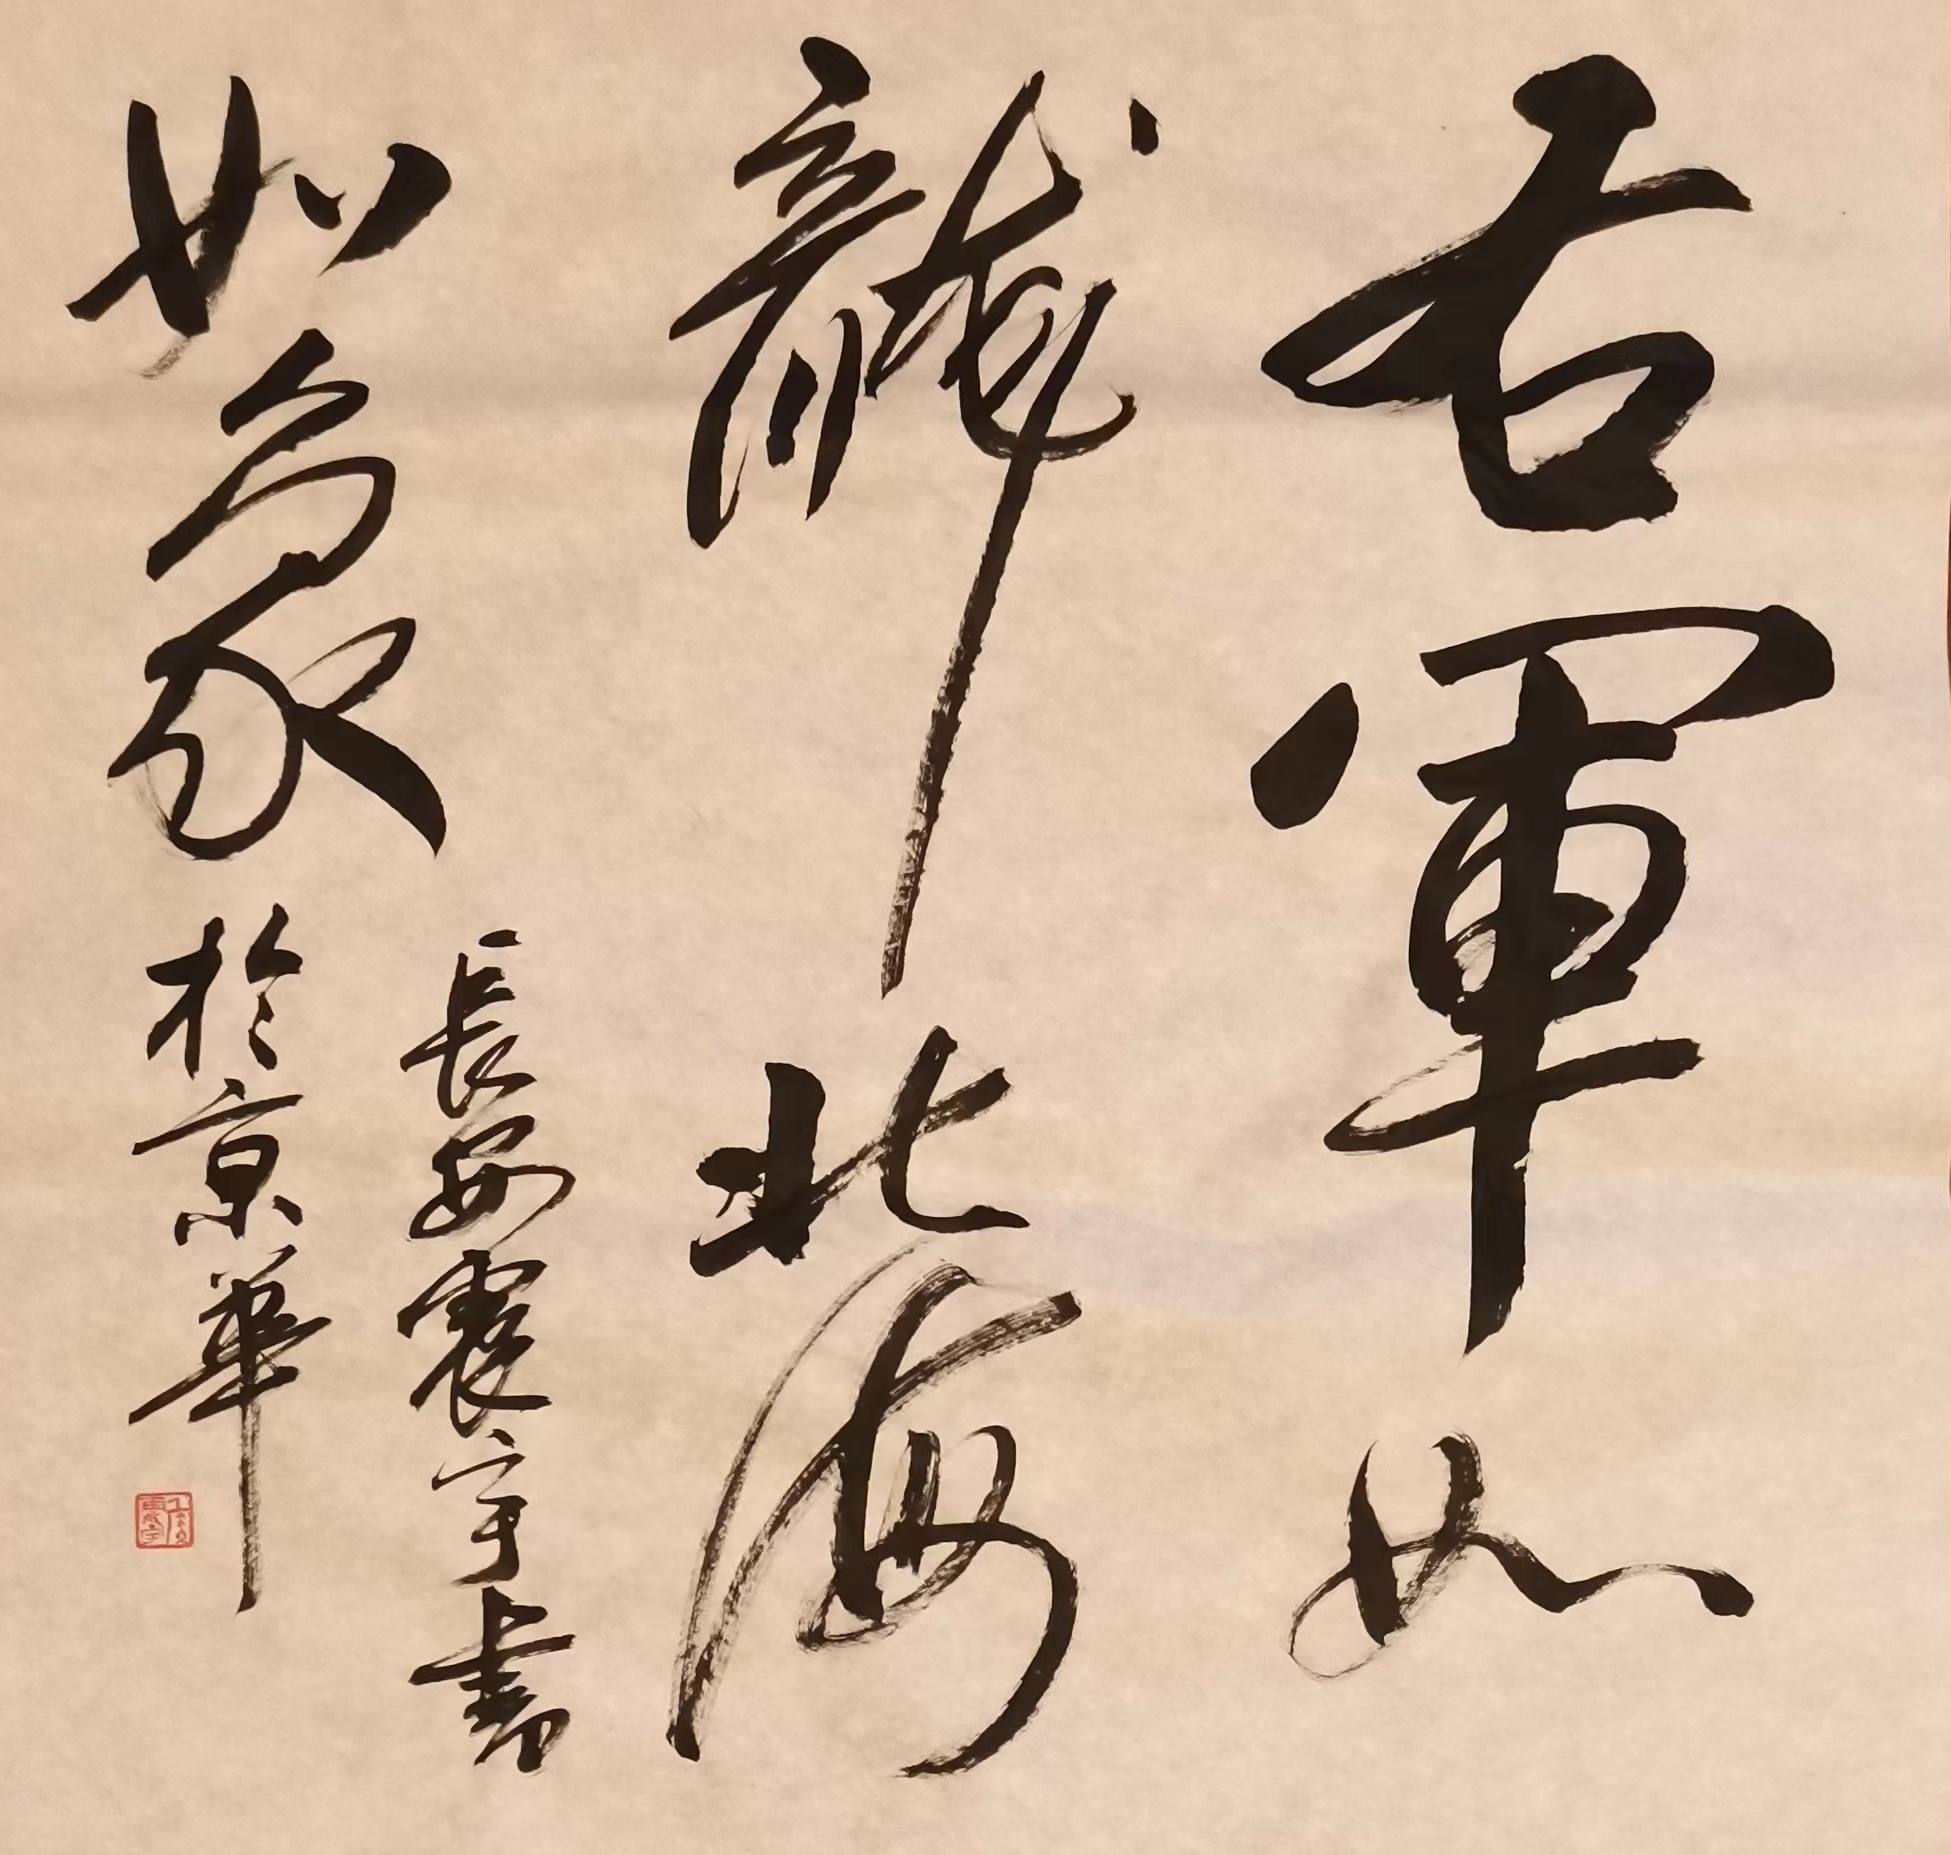 右軍如
龍北海
如象
長安震宇書
於京華